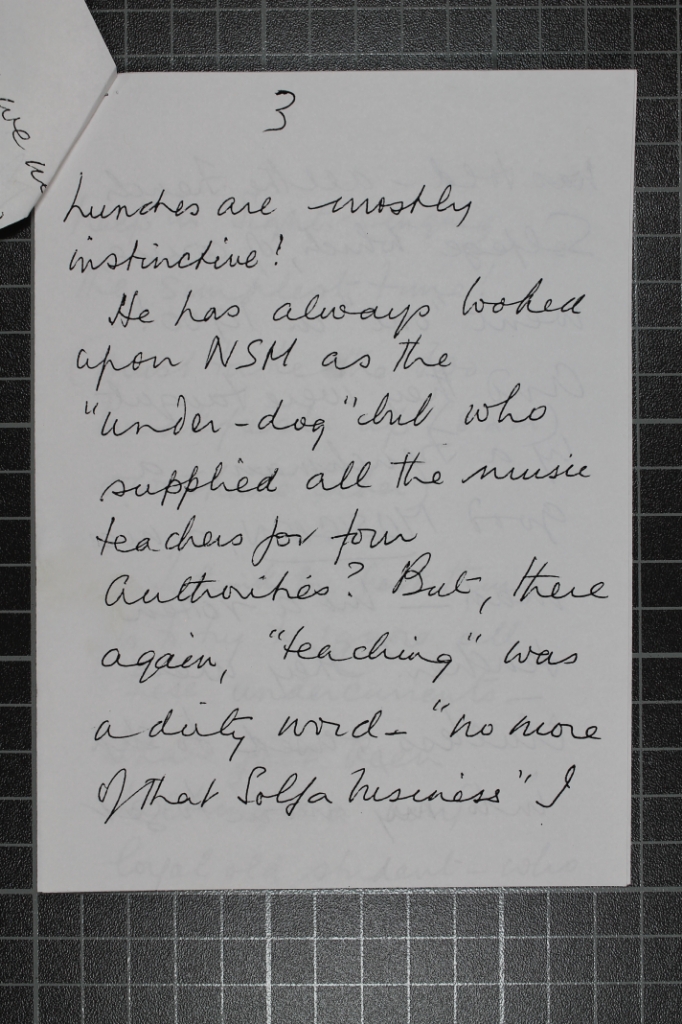 3
hunches are mostly
instinctive!
He has always looked
upon NSM as the
"under-dog" but who
supplied all the music
teachers for four
Authorities? But, there
again, "teaching" was
a dirty word - "no more
of that Solfa business" I